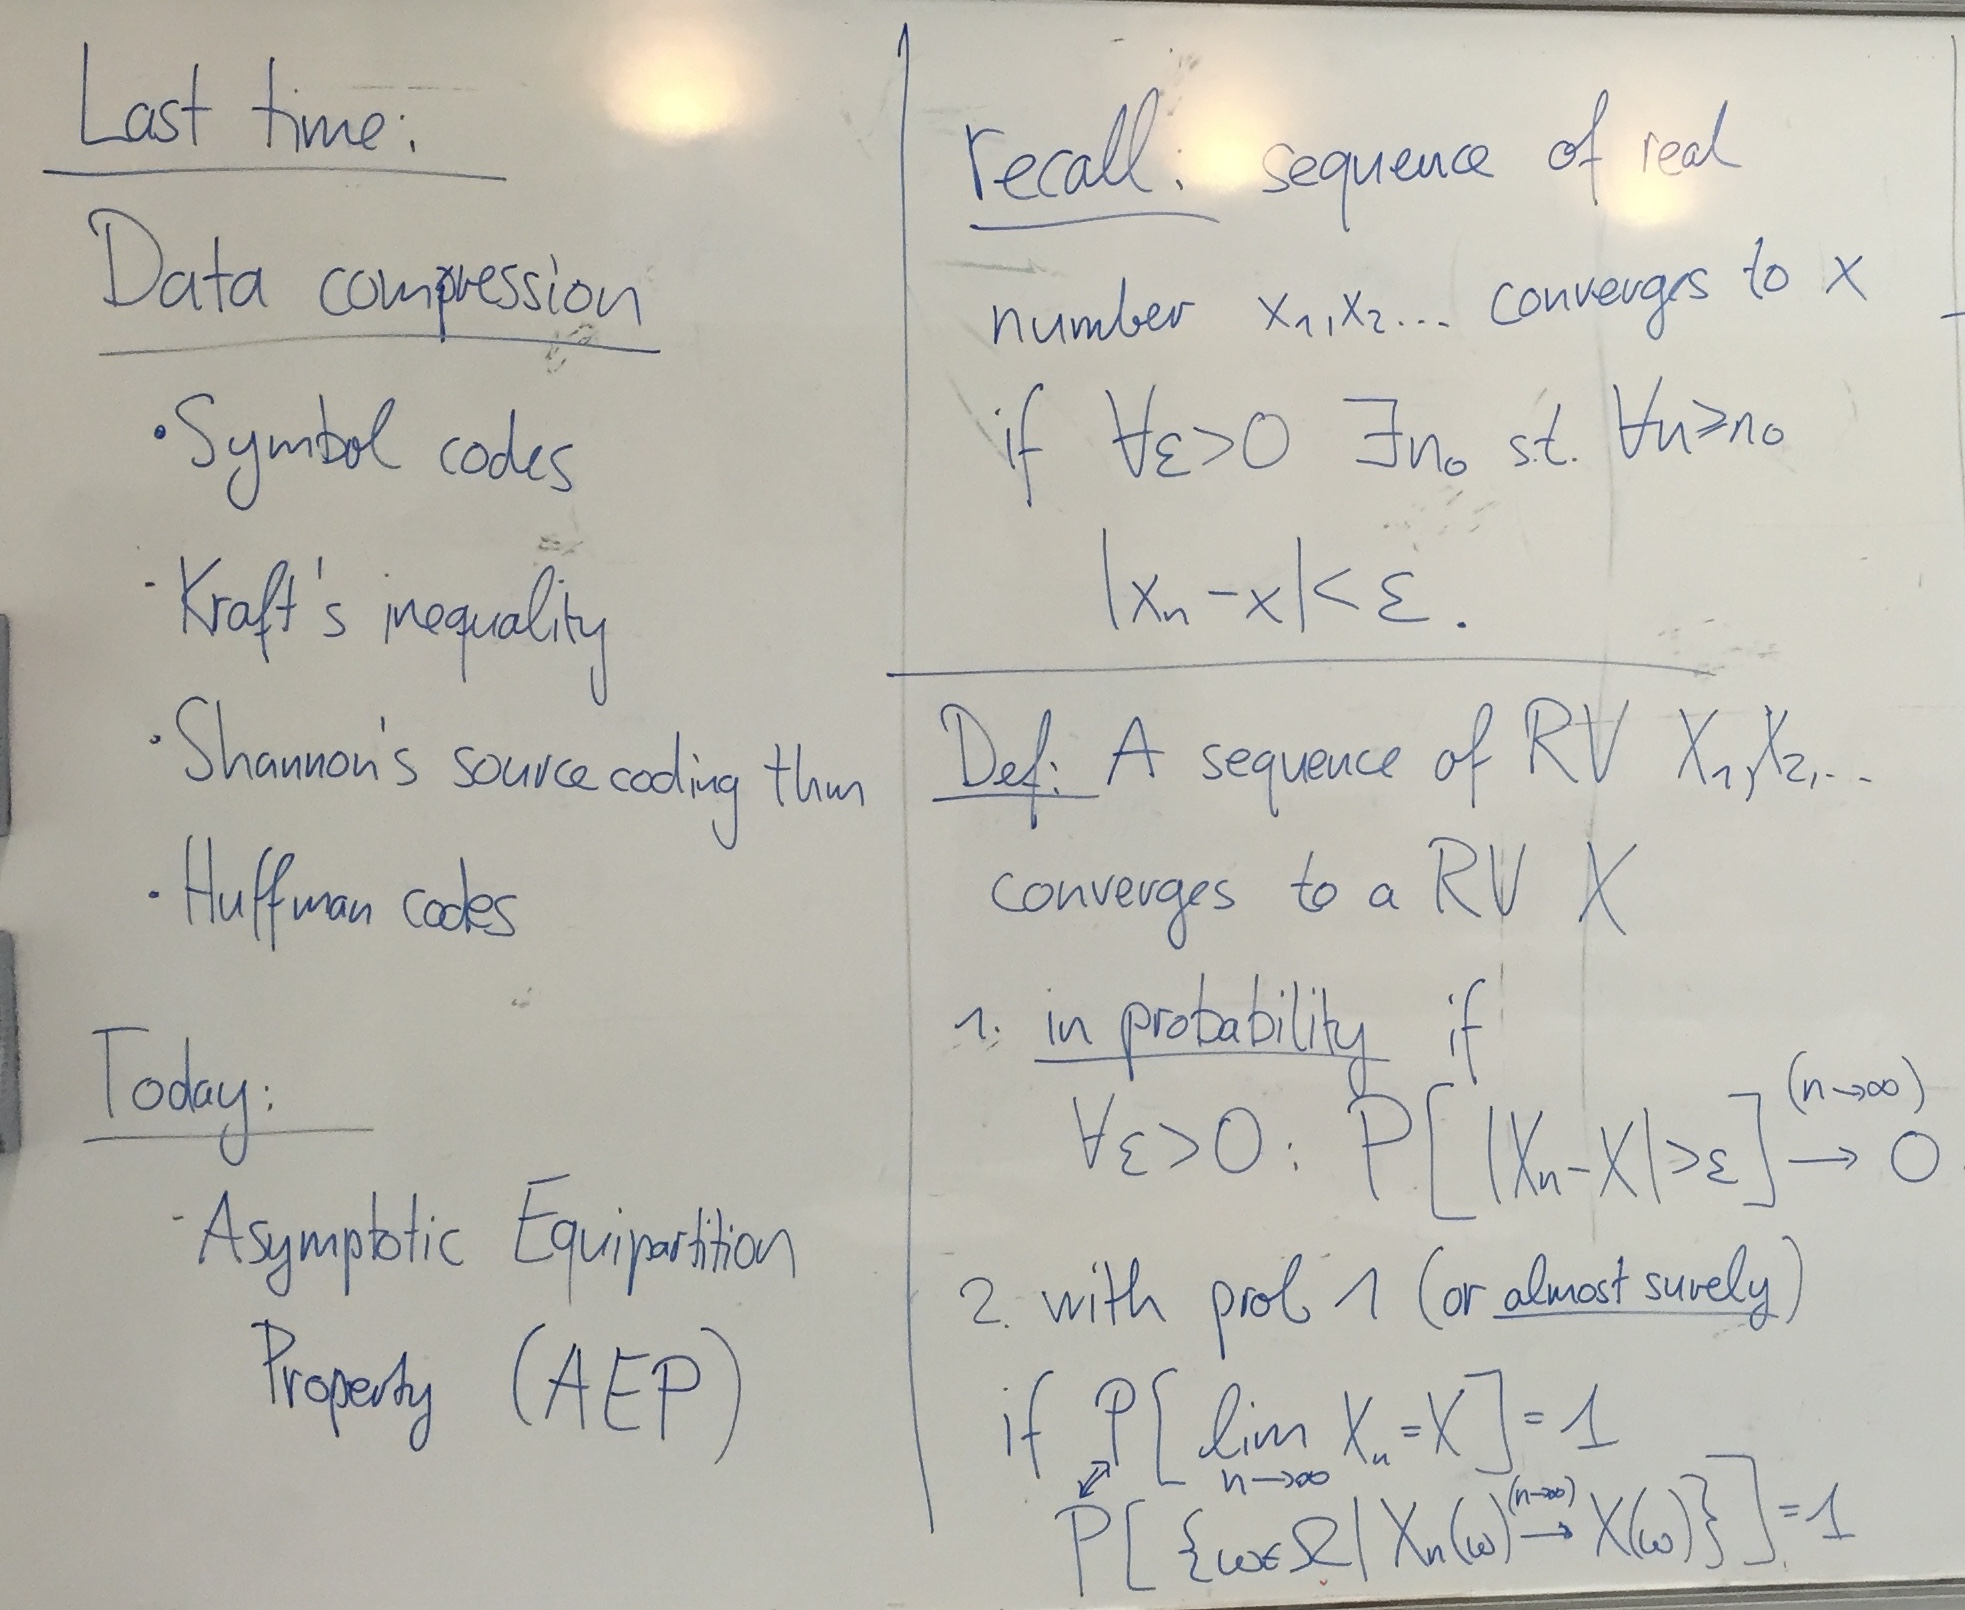 Last time:
Data compression
• Symbol codes
- Kraft's inequality
• Shannon's source coding thm
• Huffman codes
Today:
- Asymptotic Equipartition
Property (AEP)
recall: sequence of real
number x₁,x₂... converges to x
if ∀ε>0 ∃n₀ s.t. ∀n≥n₀
|xₙ-x|<ε.
Def: A sequence of RV X₁,X₂,...
converges to a RV X
1. in probability if
∀ε>0: P[|Xₙ-X|>ε] →^(n→∞) 0.
2. with prob 1 (or almost surely)
if P[lim_{n→∞} Xₙ=X]=1
⇔
P[{ω∈Ω | Xₙ(ω) →^(n→∞) X(ω)}]=1